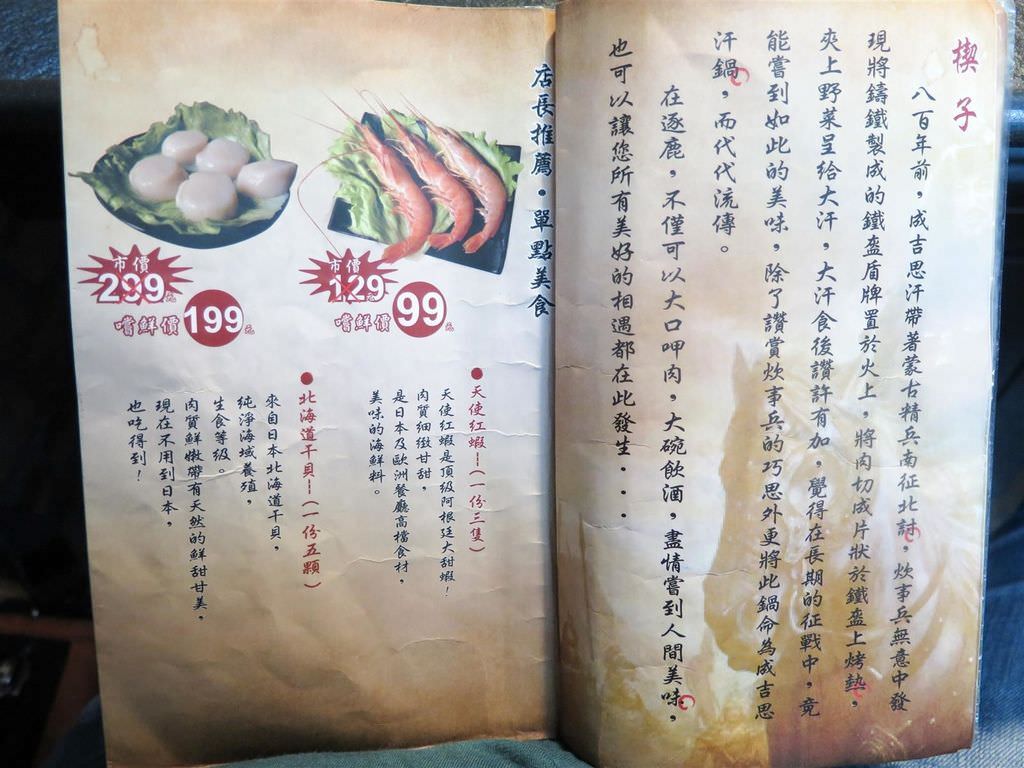 楔子
八百年前，成吉思汗帶著蒙古精兵南征北討，炊事兵無意中發
現將鑄鐵製成的鐵盔盾牌置於火上，將肉切成片狀於鐵盔上烤熟，
夾上野菜呈給大汗，大汗食後讚許有加，覺得在長期的征戰中，竟
能嘗到如此的美味，除了讚賞炊事兵的巧思外更將此鍋命為成吉思
汗鍋，而代代流傳。
在逐鹿，不僅可以大口呷肉，大碗飲酒，盡情嘗到人間美味，
也可以讓您所有美好的相遇都在此發生...
店長推薦・單點美食
市價
129元
嚐鮮價99元
市價
299元
嚐鮮價199元
●天使紅蝦—(一份三隻)
天使紅蝦是頂級阿根廷大甜蝦！
肉質細緻甘甜，
是日本及歐洲餐廳高檔食材，
美味的海鮮料。
●北海道干貝—(一份五顆)
來自日本北海道干貝，
純淨海域養殖，
生食等級。
肉質鮮嫩帶有天然的鮮甜甘美，
現在不用到日本，
也吃得到！